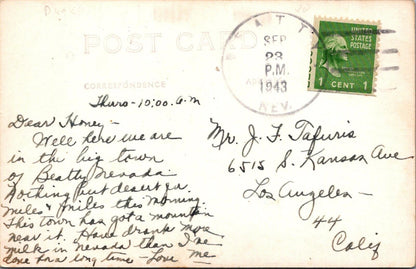 POST CARD
BEATTY
SEP
23
P.M.
1943
NEV.
UNITED
STATES
POSTAGE
1 CENT 1
CORRESPONDENCE
Thurs - 10:00 A.M
Dear Honey -
Well here we are
in the big town
of Beatty Nevada
Nothing but desert for
miles & miles this morning.
This town has got a mountain
near it. Have drank more
milk in Nevada than I've
done for a long time - Love Me
Mr. J. F. Tafuris
6515 S. Kansas Ave
Los Angeles -
44
Calif